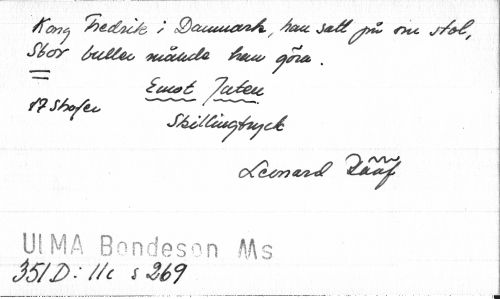 Kong Fredrik i Danmark, han satt på sin stol,
Stor buller månde han göra.
Emot Juten
17 Strofer
Skillingtryck
Leonard Rääf
ULMA Bondeson Ms
351 D: 11c s 269